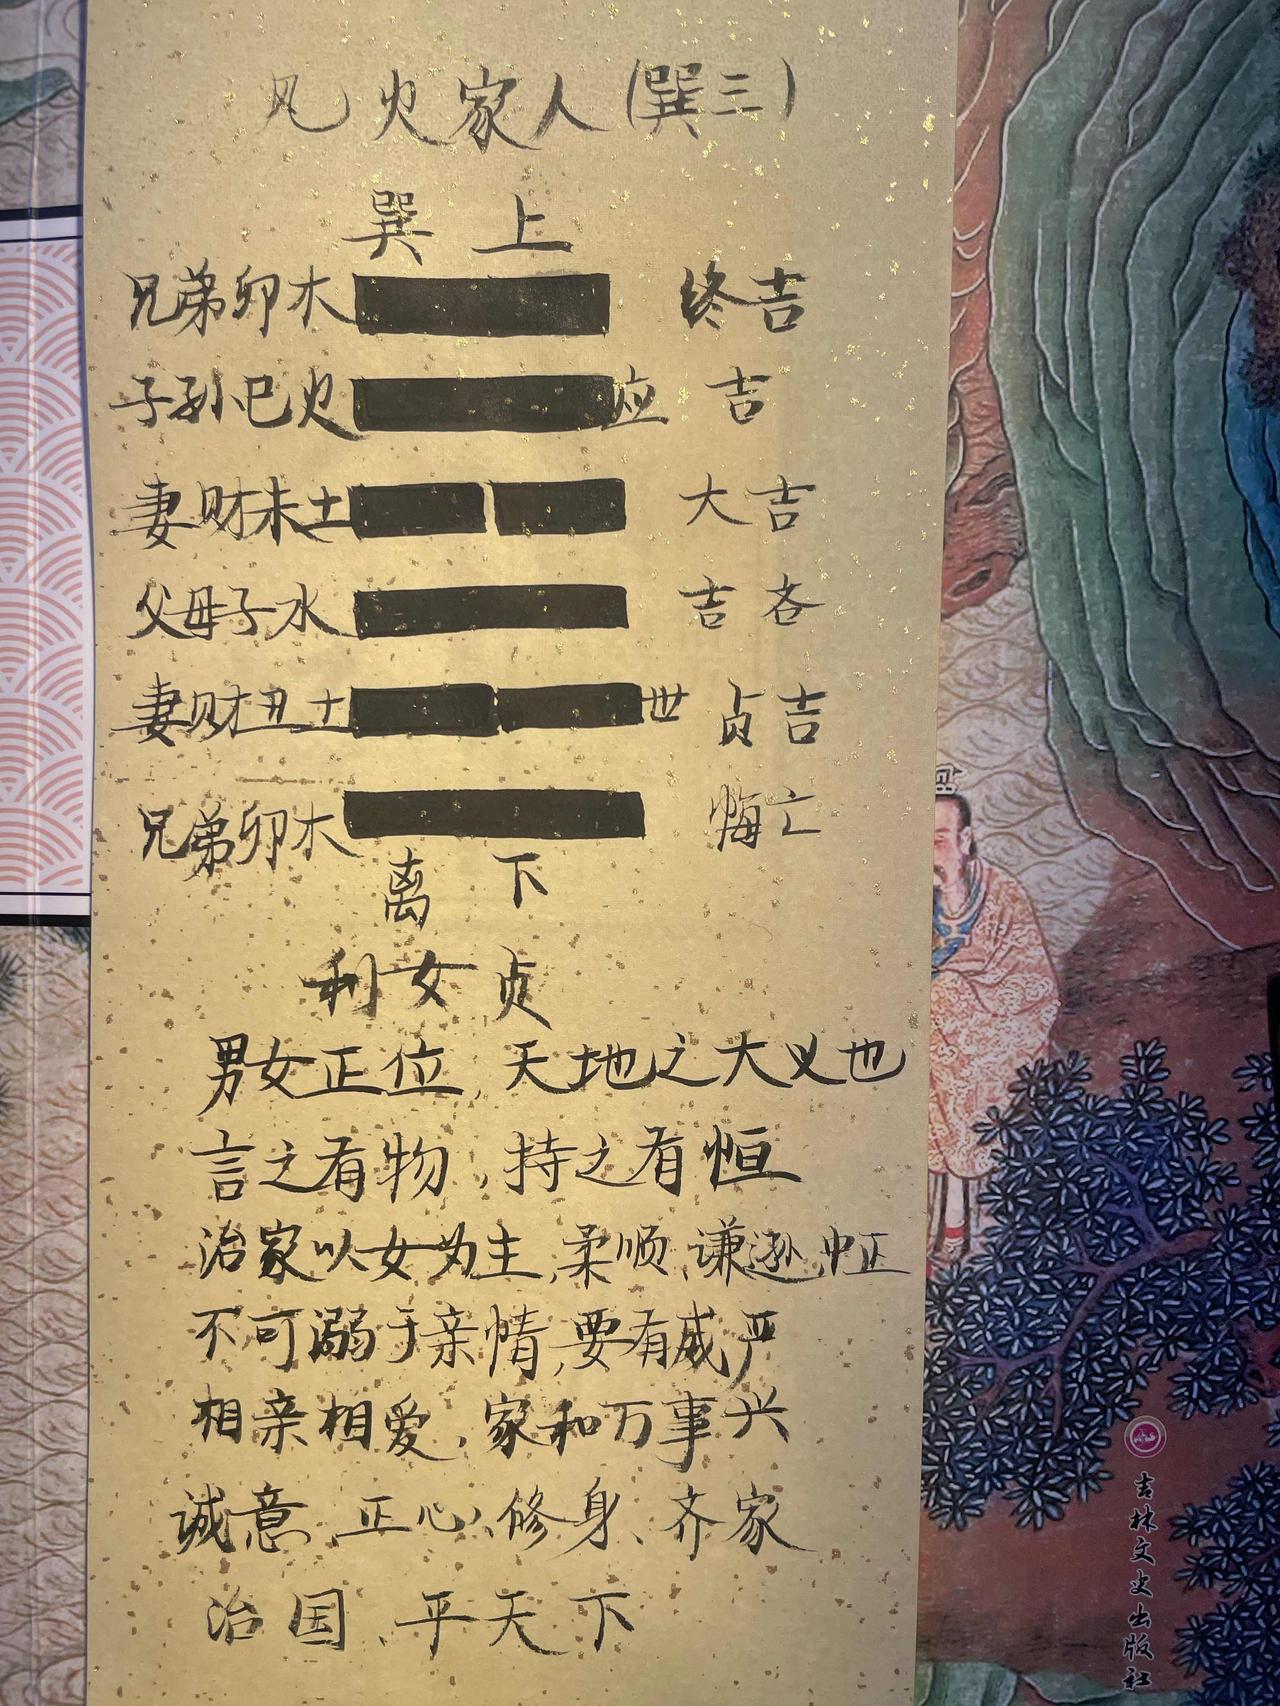 风火家人（巽三）
巽上
兄弟卯木 终吉
子孙巳火 应 吉
妻财未土 大吉
父母子水 吉吝
妻财丑土 世 贞吉
兄弟卯木 悔亡
离下
利女贞
男女正位，天地之大义也
言之有物，持之有恒
治家以女为主，柔顺、谦逊、中正
不可溺于亲情，要有威严
相亲相爱，家和万事兴
诚意、正心、修身、齐家
治国、平天下
吉林文史出版社